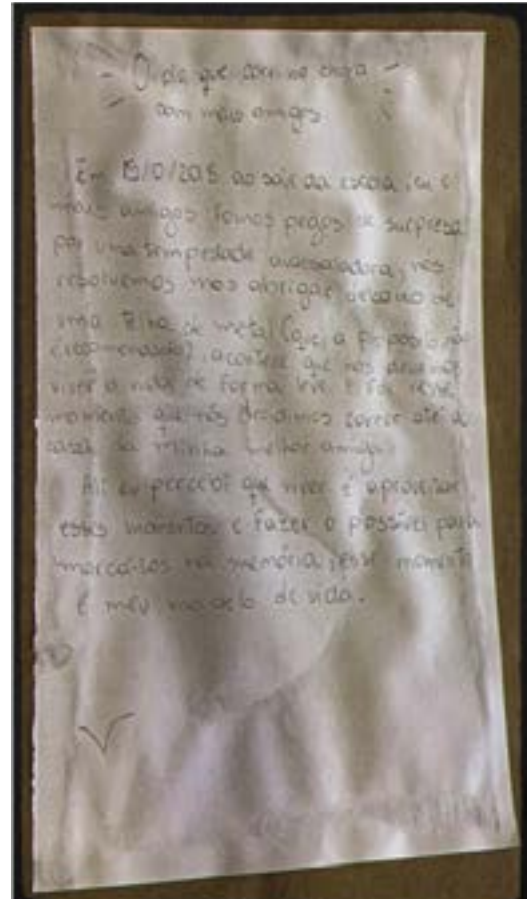 O dia que corri na chuva
com meus amigos.
Em 15/10/2015 ao sair da escola, eu e
meus amigos fomos pegos de surpresa
por uma tempestade avassaladora, nós
resolvemos nos abrigar debaixo de
uma telha de metal (que, a propósito, não
é recomendado), acontece que nós devemos
viver a vida de forma leve e foi nesse
momento que nós decidimos correr até a
casa da minha melhor amiga.
Ali eu percebi que viver é aproveitar
esses momentos e fazer o possível para
marcá-los na memória, esse momento
é meu modelo de vida.